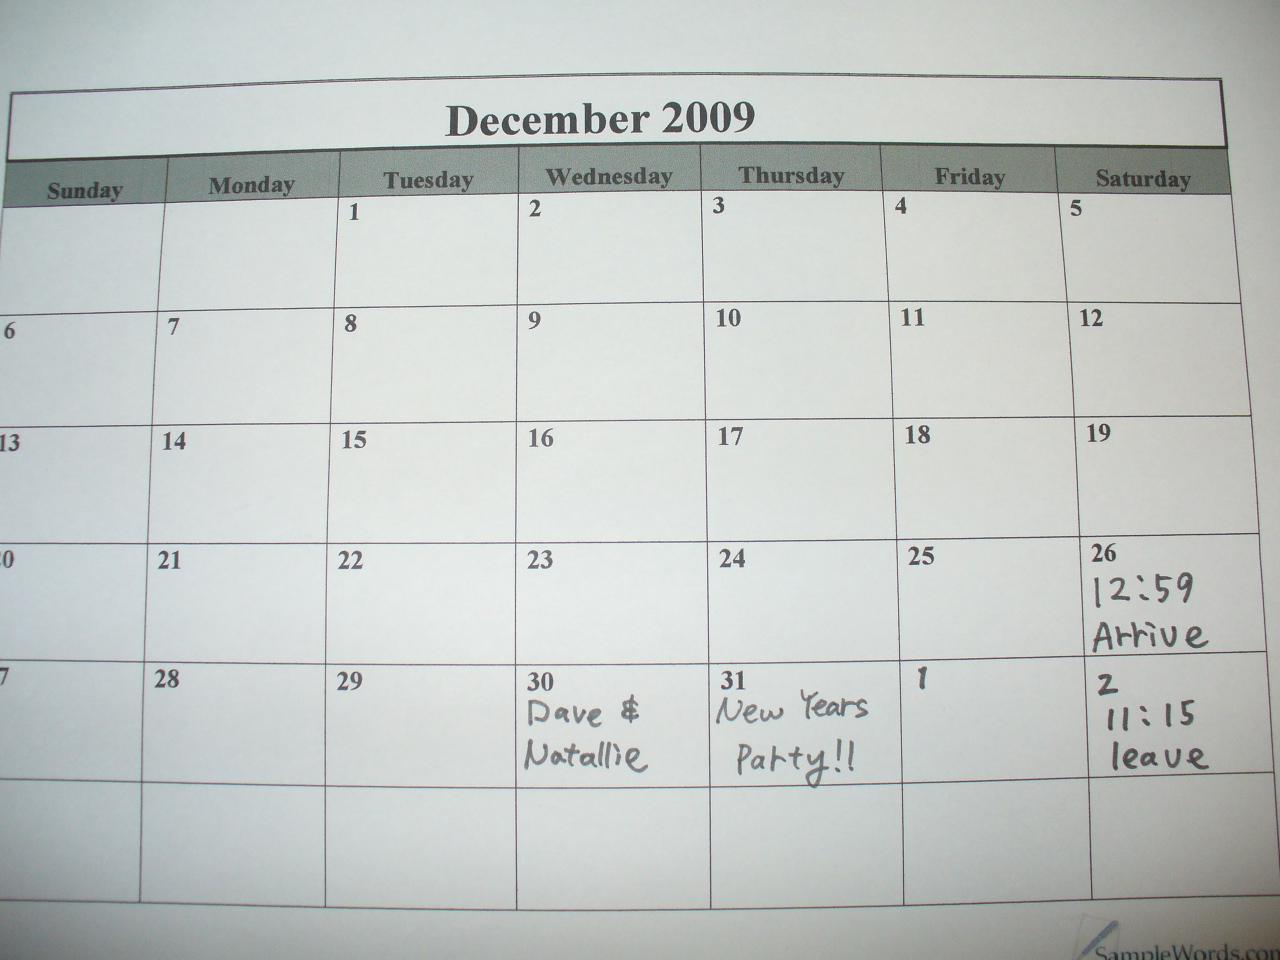 December 2009
Sunday Monday Tuesday Wednesday Thursday Friday Saturday
1 2 3 4 5
6 7 8 9 10 11 12
13 14 15 16 17 18 19
0 21 22 23 24 25 26
12:59
Arrive
7 28 29 30 31 1 2
Dave & New Years 11:15
Natallie Party!! leave
SampleWords.com